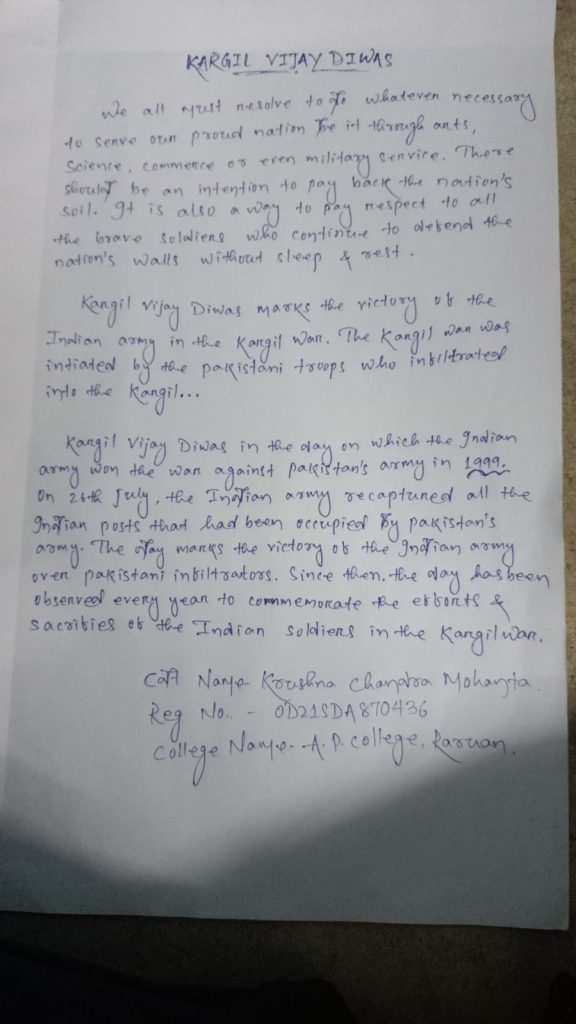 KARGIL VIJAY DIWAS
We all must resolve to do whatever necessary
to serve our proud nation be it through arts,
Science, commerce or even military service. There
should be an intention to pay back the nation's
soil. It is also a way to pay respect to all
the brave soldiers who continue to defend the
nation's walls without sleep & rest.
Kargil vijay Diwas marks the victory of the
Indian army in the Kargil War. The Kargil war was
intiated by the pakistani troops who infiltrated
into the Kargil...
Kargil vijay Diwas in the day on which the Indian
army won the war against pakistan's army in 1999.
On 26th July, the Indian army recaptured all the
Indian posts that had been occupied by pakistan's
army. The day marks the victory of the Indian army
over pakistani infiltrators. Since then, the day has been
observed every year to commemorate the efforts &
sacrifies of the Indian soldiers in the Kargil war.
Cdt Name- Krushna Chandra Mohanta
Reg No.. - OD21SDA870436
College Name- A.P. College, Raruan.